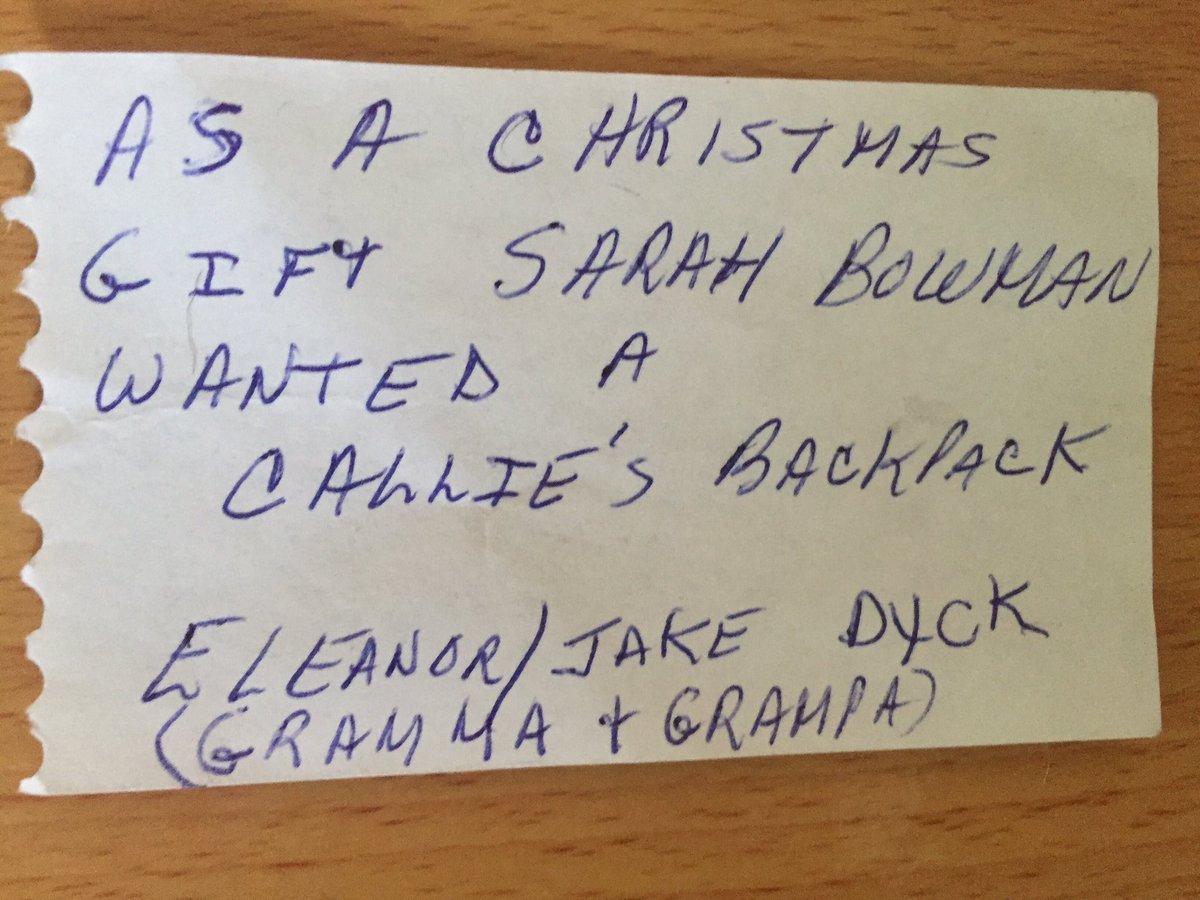 AS A CHRISTMAS
GIFT SARAH BOWMAN
WANTED A
CALLIE'S BACKPACK
ELEANOR/JAKE DYCK
(GRAMMA + GRAMPA)